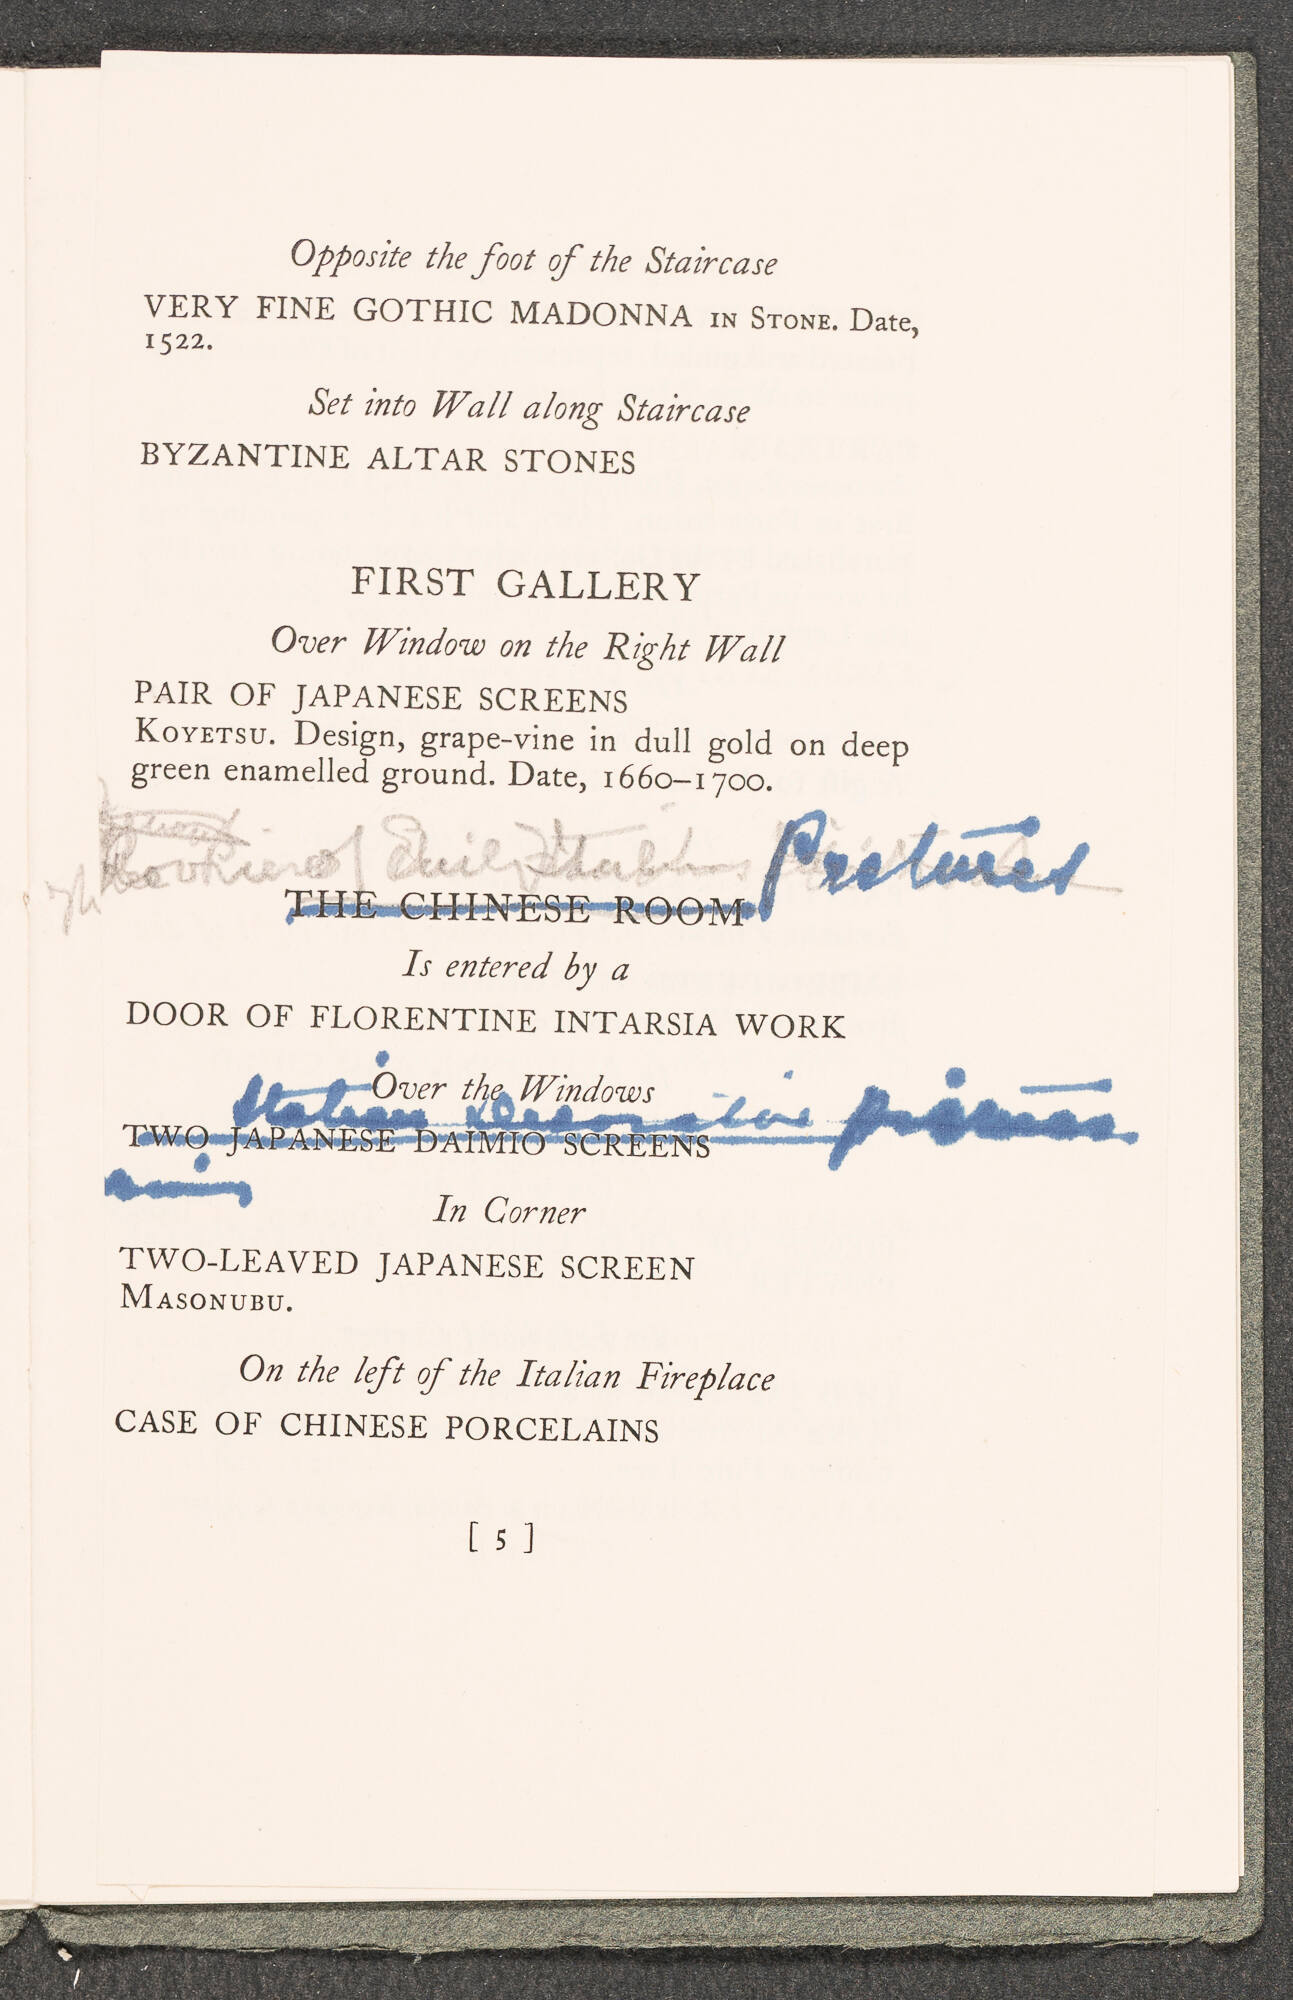 Opposite the foot of the Staircase
VERY FINE GOTHIC MADONNA IN STONE. Date,
1522.
Set into Wall along Staircase
BYZANTINE ALTAR STONES
FIRST GALLERY
Over Window on the Right Wall
PAIR OF JAPANESE SCREENS
KOYETSU. Design, grape-vine in dull gold on deep
green enamelled ground. Date, 1660–1700.
of Emily Stubbins Pictures
THE CHINESE ROOM
Is entered by a
DOOR OF FLORENTINE INTARSIA WORK
Over the Windows
Italian Decorative pictures
TWO JAPANESE DAIMIO SCREENS
In Corner
TWO-LEAVED JAPANESE SCREEN
MASONUBU.
On the left of the Italian Fireplace
CASE OF CHINESE PORCELAINS
[ 5 ]